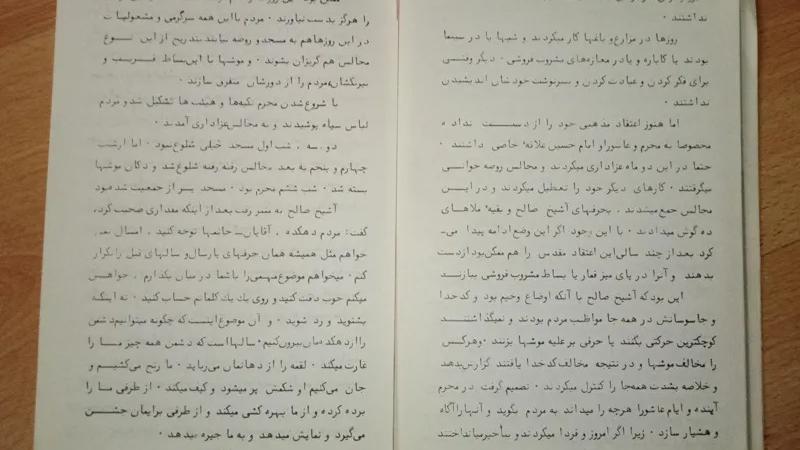 نداشتند ۰
روزها در مزارع و باغها کار میکردند و شبها یا در سینما
بودند یا کاباره و یا در مغازه‌های مشروب فروشی ۰ دیگر وقتی
برای فکر کردن و عبادت کردن و بسرنوشت خودشان اندیشیدن
نداشتند ۰
اما هنوز اعتقاد مذهبی خود را از دست نداده
مخصوصا به محرم و عاشورا و امام حسین علاقه‌ٔ خاصی داشتند ۰
حتما در این دو ماه عزاداری میکردند و مجالس روضه خوانی
میگرفتند ۰ کارهای دیگر خود را تعطیل میکردند و در این
مجالس جمع میشدند ، بحرفهای آشیخ صالح و بقیه‌ٔ ملاهای
ده گوش میدادند ۰ با این وجود اگر این وضع ادامه پیدا می‌ـ
کرد بعد از چند سالی این اعتقاد مقدس را هم ممکن بود از دست
بدهند و آنرا در پای میز قمار یا بساط مشروب فروشی ببازند
این بود که آشیخ صالح با آنکه اوضاع وخیم بود و کدخدا
و جاسوسانش در همه جا مواظب مردم بودند و نمیگذاشتند
کوچکترین حرکتی بکنند یا حرفی بر علیه موشها بزنند ۰ وهرکس
را مخالف موشها و در نتیجه مخالف کدخدا یافتند گزارش بدهد
و خلاصه بشدت همه‌جا را کنترل میکردند ۰ تصمیم گرفت در محرم
آینده و ایام عاشورا هرچه را میداند به مردم بگوید و آنها را آگاه
و هشیار سازد ۰ زیرا اگر امروز و فردا میکردند و بتأخیر میانداختند
را هرگز بدست نیاورند ۰ مردم با این همه سرگرمی و مشغولیات
در این روزها هم به مسجد و روضه نیایند بتدریج از این نوع
مجالس هم گریزان بشوند ۰ و موشها با این بساط فریب و
نیرنگشان مردم را از دورشان متفرق سازند ۰
با شروع شدن محرم تکیه‌ها و هیئت‌ها تشکیل شد و مردم
لباس سیاه پوشیدند و به مجالس عزاداری آمدند ۰
دو ، سه ، شب اول مسجد خیلی شلوغ نبود ۰ اما از شب
چهارم و پنجم به بعد مجالس رفته رفته شلوغ شد و دکان موشها
بسته شد ۰ شب ششم محرم بود ۰ مسجد پر از جمعیت شده بود
آشیخ صالح به منبر رفت بعد از اینکه مقداری صحبت کرد،
گفت: مردم دهکده ، آقایان ــ خانمها توجه کنید ، امسال نمی
خواهم مثل همیشه همان حرفهای پارسال و سالهای قبل را تکرار
کنم ۰ میخواهم موضوع مهمی را با شما در میان بگذارم ، خواهش
میکنم خوب دقت کنید و روی یک یک کلماتم حساب کنید ۰ نه اینکه
بشنوید و رد شوید ۰ و آن موضوع اینست که چگونه میتوانیم دشمن
را از دهکده‌مان بیرون کنیم ۰ سالها است که دشمن همه چیز ما را
غارت میکند ۰ لقمه را از دهانمان می‌رباید ۰ ما رنج می‌کشیم و
جان می‌کنیم او شکمش پر میشود و کیف میکند ۰ از طرفی ما را
برده کرده و از ما بهره کشی میکند و از طرفی برایمان جشن
می‌گیرد و نمایش میدهد و به ما جیره میدهد ۰